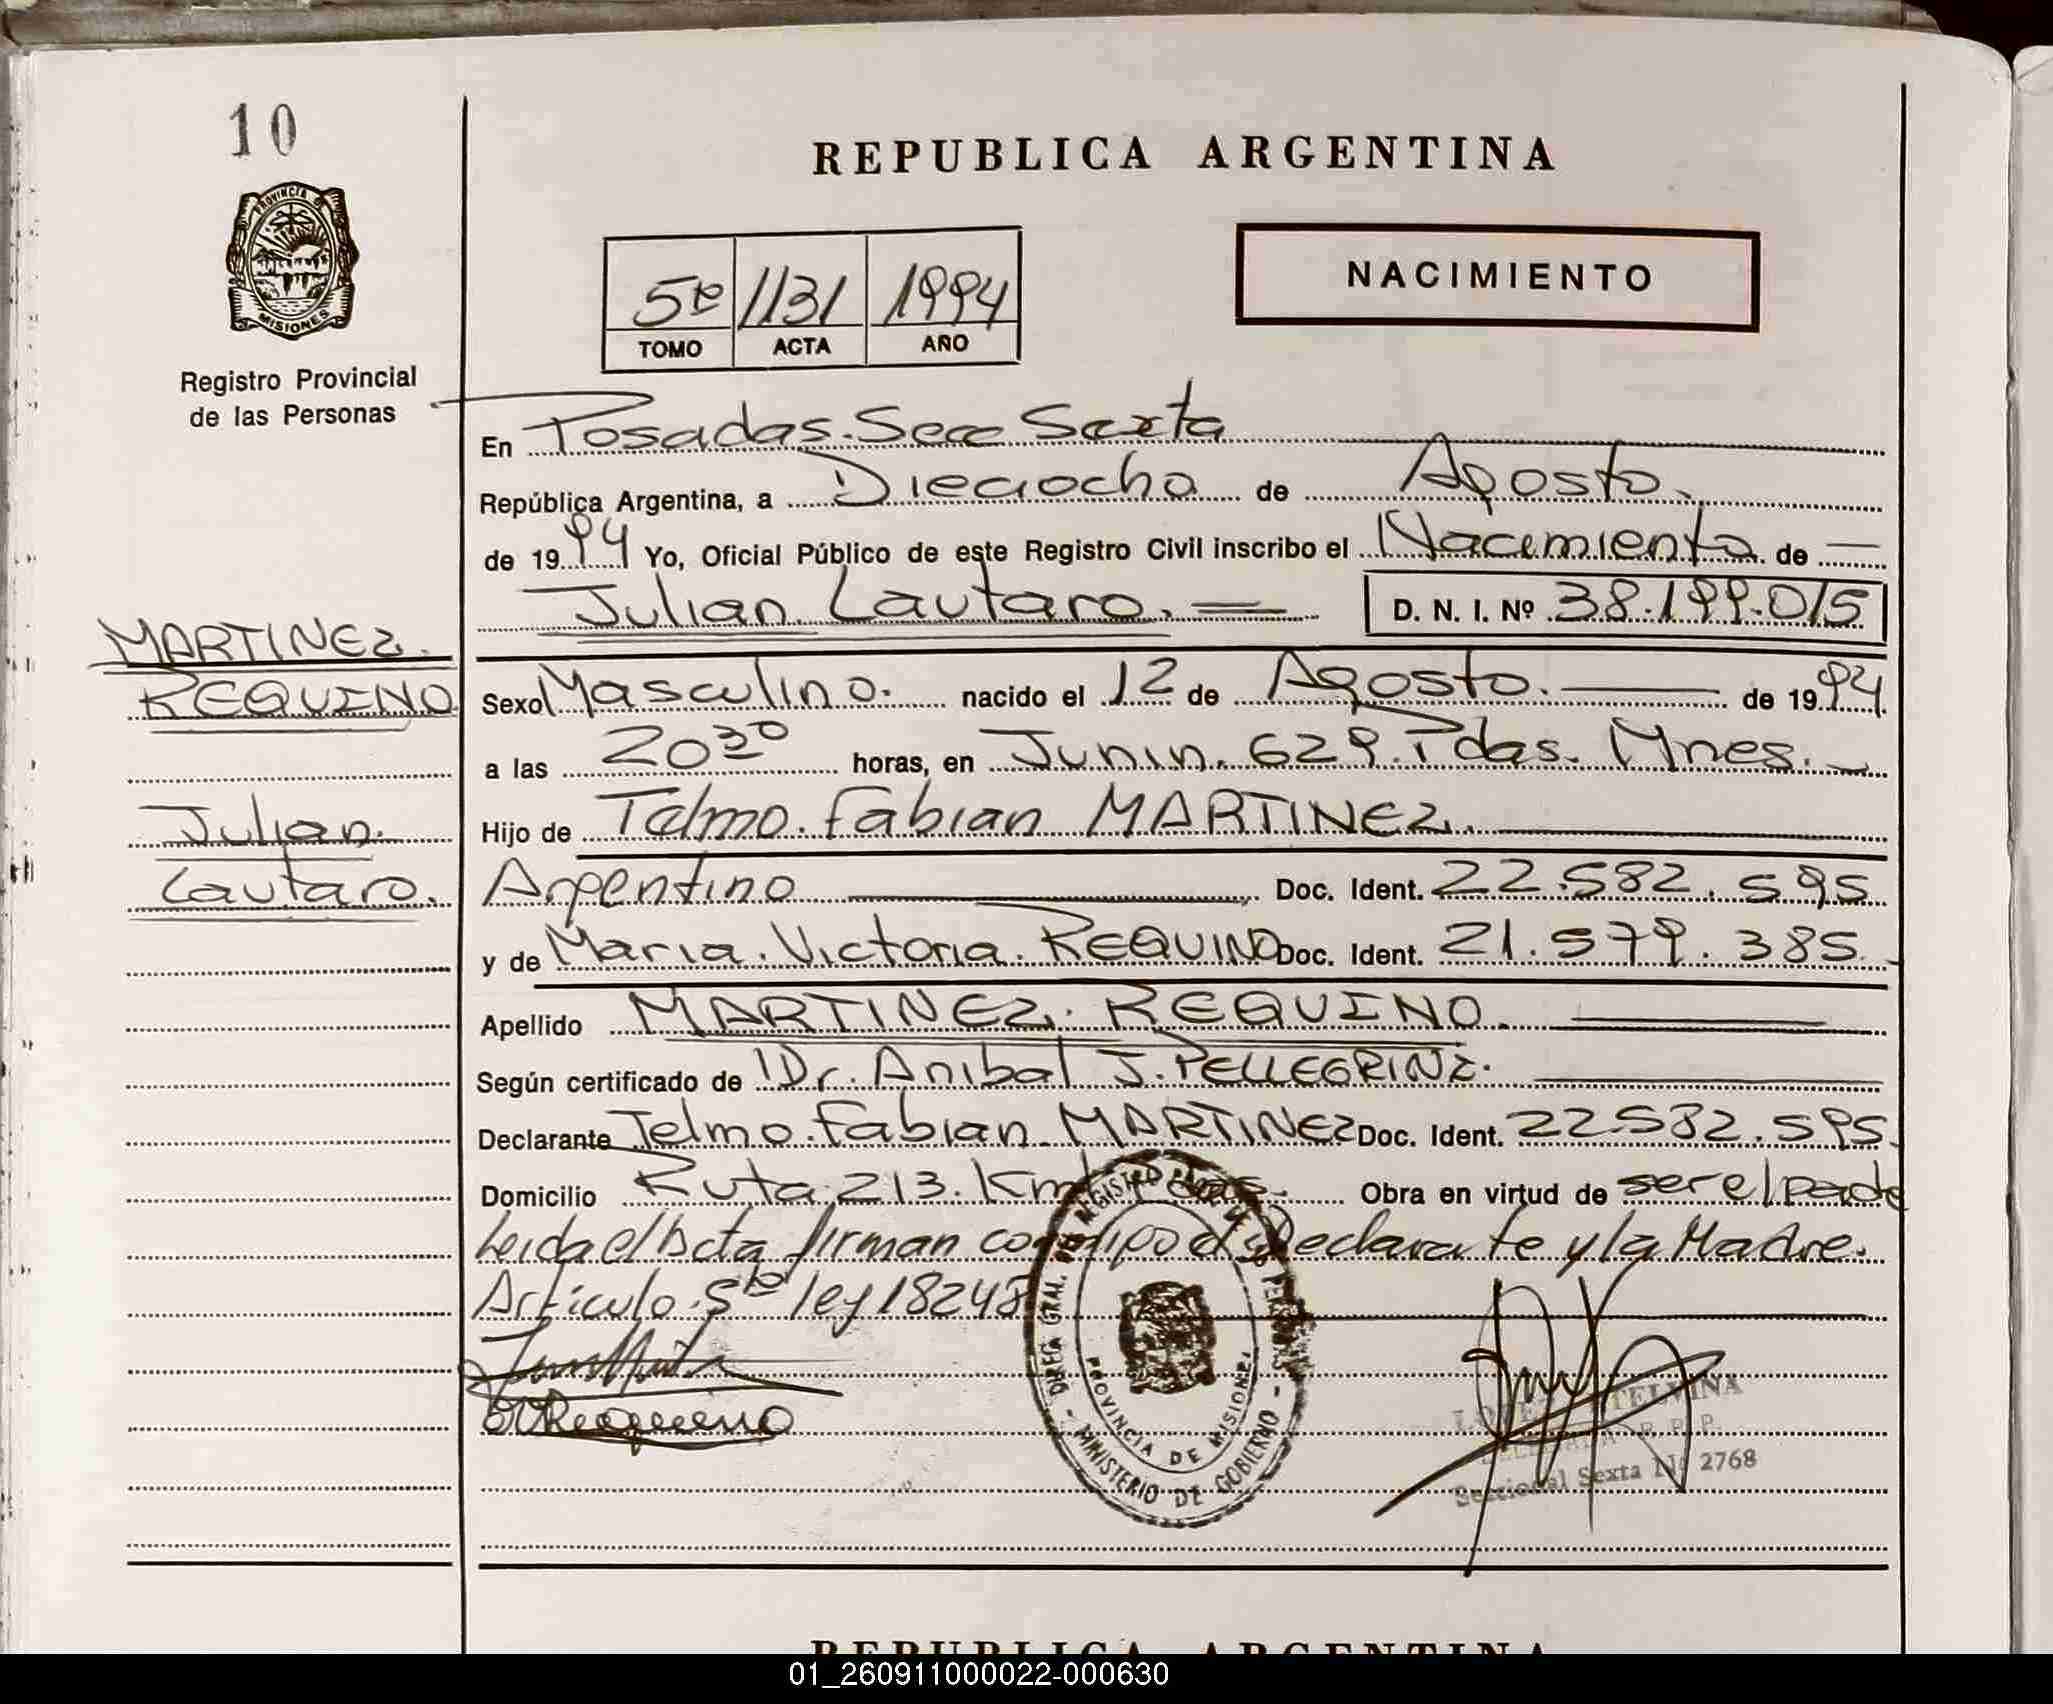 10
PROVINCIA DE
MISIONES
Registro Provincial
de las Personas
REPUBLICA ARGENTINA
5to 1131 1994
TOMO ACTA AÑO
NACIMIENTO
En Posadas. Secc Sexta
República Argentina, a Dieciocho de Agosto.
de 1994 Yo, Oficial Público de este Registro Civil inscribo el Nacimiento de —
Julian Lautaro. D. N. I. Nº 38.199.015
MARTINEZ.
REQUINO
Julian.
Lautaro.
Sexo Masculino. nacido el 12 de Agosto. de 1994
a las 20 30 horas, en Junin. 629. Pdas. Mnes.
Hijo de Telmo. Fabian MARTINEZ.
Argentino Doc. Ident. 22.582.595
y de Maria. Victoria. REQUINO Doc. Ident. 21.579.385.
Apellido MARTINEZ. REQUINO.
Según certificado de Dr. Anibal J. PELLEGRINI.
Declarante Telmo. Fabian MARTINEZ Doc. Ident. 22.582.595.
Domicilio Ruta. 213. Km Obra en virtud de ser el padre
Leida el Acta firman conmigo el Declarante y la Madre.
Articulo. 5to ley 18248
DIREC. GRAL. DEL REGISTRO PROV. DE LAS PERSONAS
PROVINCIA DE MISIONES
- MINISTERIO DE GOBIERNO -
TELVINA
R. P. P.
Seccional Sexta Nº 2768
REPUBLICA ARGENTINA
01_260911000022-000630